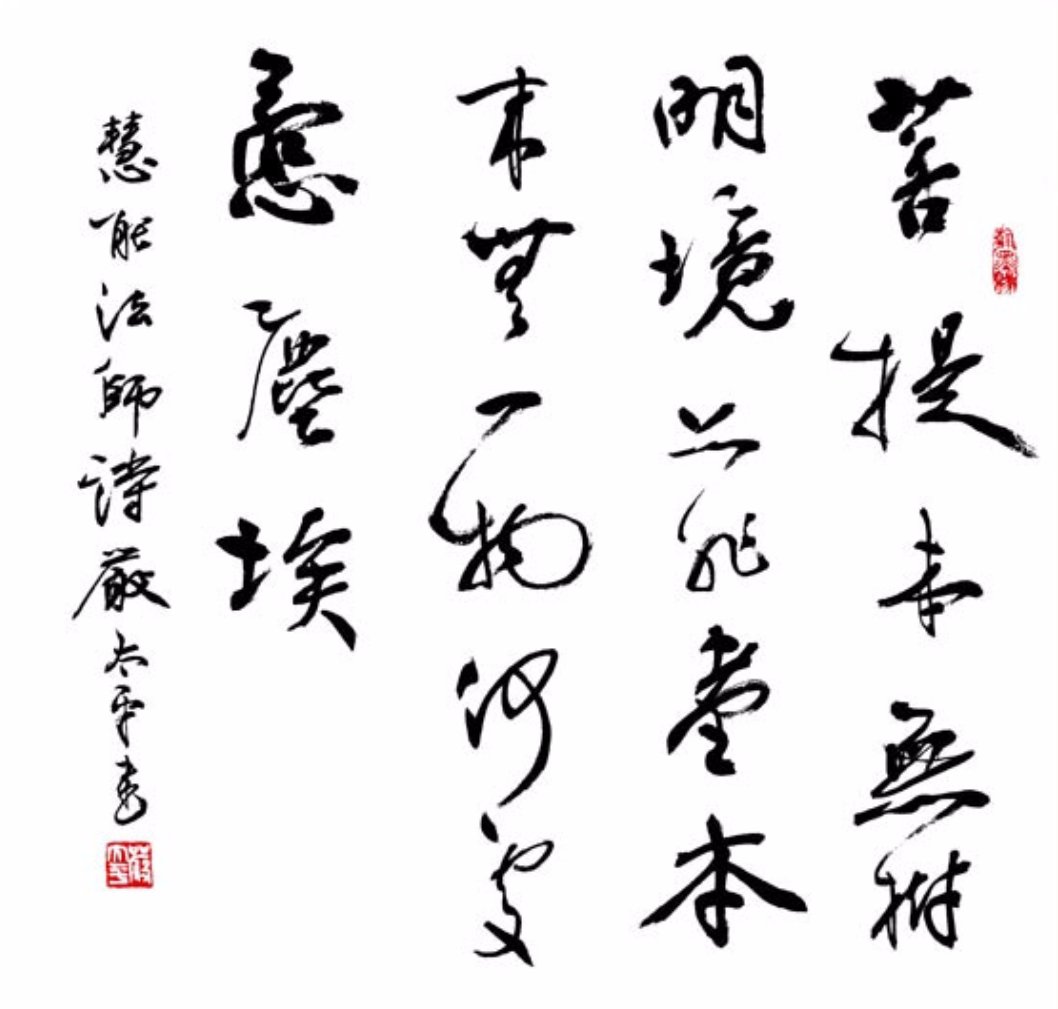 菩提本無樹
明境亦非臺本
来無一物何處
惹塵埃
慧能法師詩嚴太平書